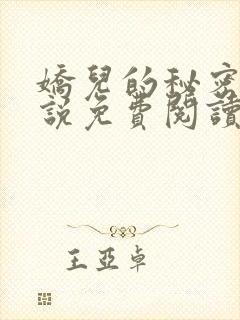 嬌兒的秘密
說免費閱讀
王亞卓